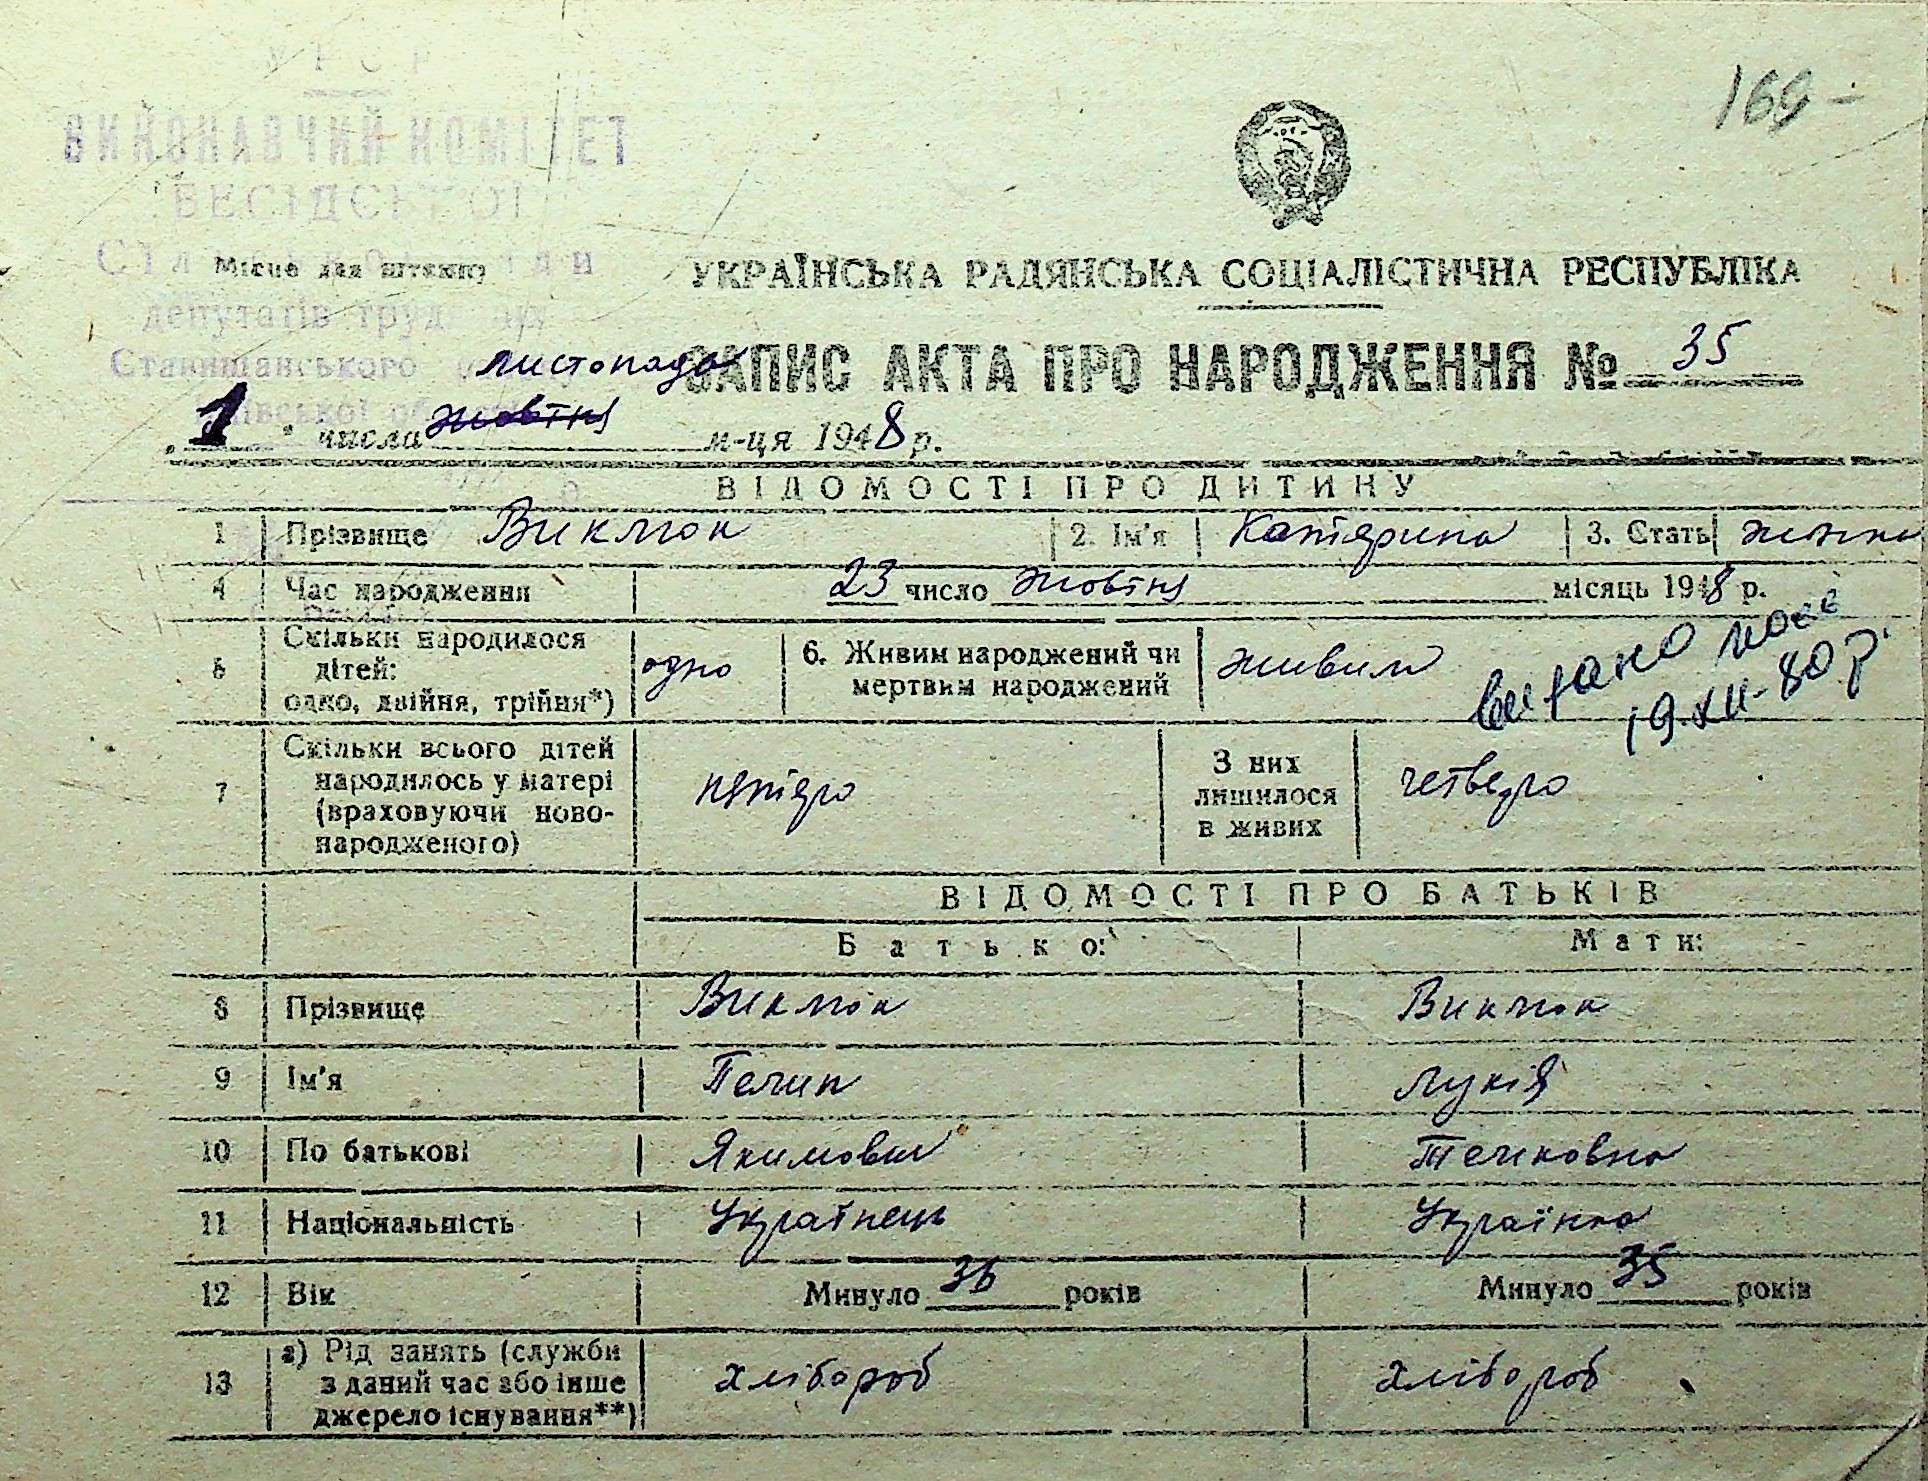 УРСР
169 -
ВИКОНАВЧИЙ КОМІТЕТ
БЕСІДСЬКОЇ
Місце для штампу
УКРАЇНСЬКА РАДЯНСЬКА СОЦІАЛІСТИЧНА РЕСПУБЛІКА
депутатів трудящих
ЗАПИС АКТА ПРО НАРОДЖЕННЯ № 35
Станишанського
листопада
„1“ числа жовтня м-ця 1948 р.
ВІДОМОСТІ ПРО ДИТИНУ
1 Прізвище Виклюк 2. Ім'я Катярина 3. Стать
4 Час народження 23 число жовтня місяць 1948 р.
5 Скільки народилося дітей: одно, двійня, трійня*) одно 6. Живим народжений чи мертвим народжений живим
видано
19.XII-80 р.
7 Скільки всього дітей народилось у матері (враховуючи новонародженого) пятяро З них лишилося в живих четверо
ВІДОМОСТІ ПРО БАТЬКІВ
Батько: Мати:
8 Прізвище Виклюк Виклюк
9 Ім'я Пелип Лукія
10 По батькові Якимович
11 Національність Українець Українка
12 Вік Минуло 36 років Минуло 35 років
13 а) Рід занять (служби з даний час або інше джерело існування**) хлібороб хлібороб